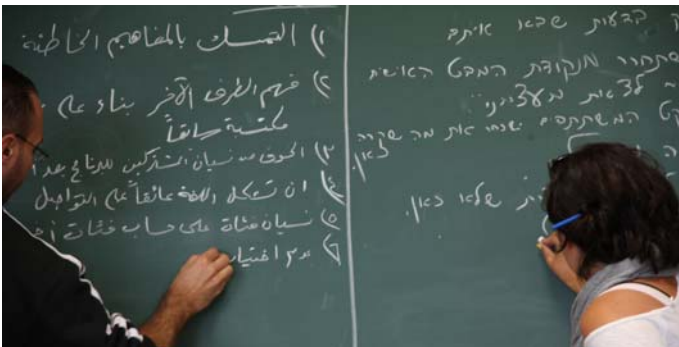 ١) التمسك بالمفاهيم الخاطئة
٢) فهم الطرف الآخر بناء على
مكتسبة سابقاً
٣) الخوف من نسيان المشتركين للبرنامج بعد
٤) ان تشكل اللغة عائقاً على التواصل
٥) نسيان فئات على حساب فئات
٦) عدم اختيار
הדעות שבאו איתם
מנקודת המבט האישית
לצאת מעצמנו"
המשתתפים ישכחו את מה שקרה
כאן.
שלאו כאן.